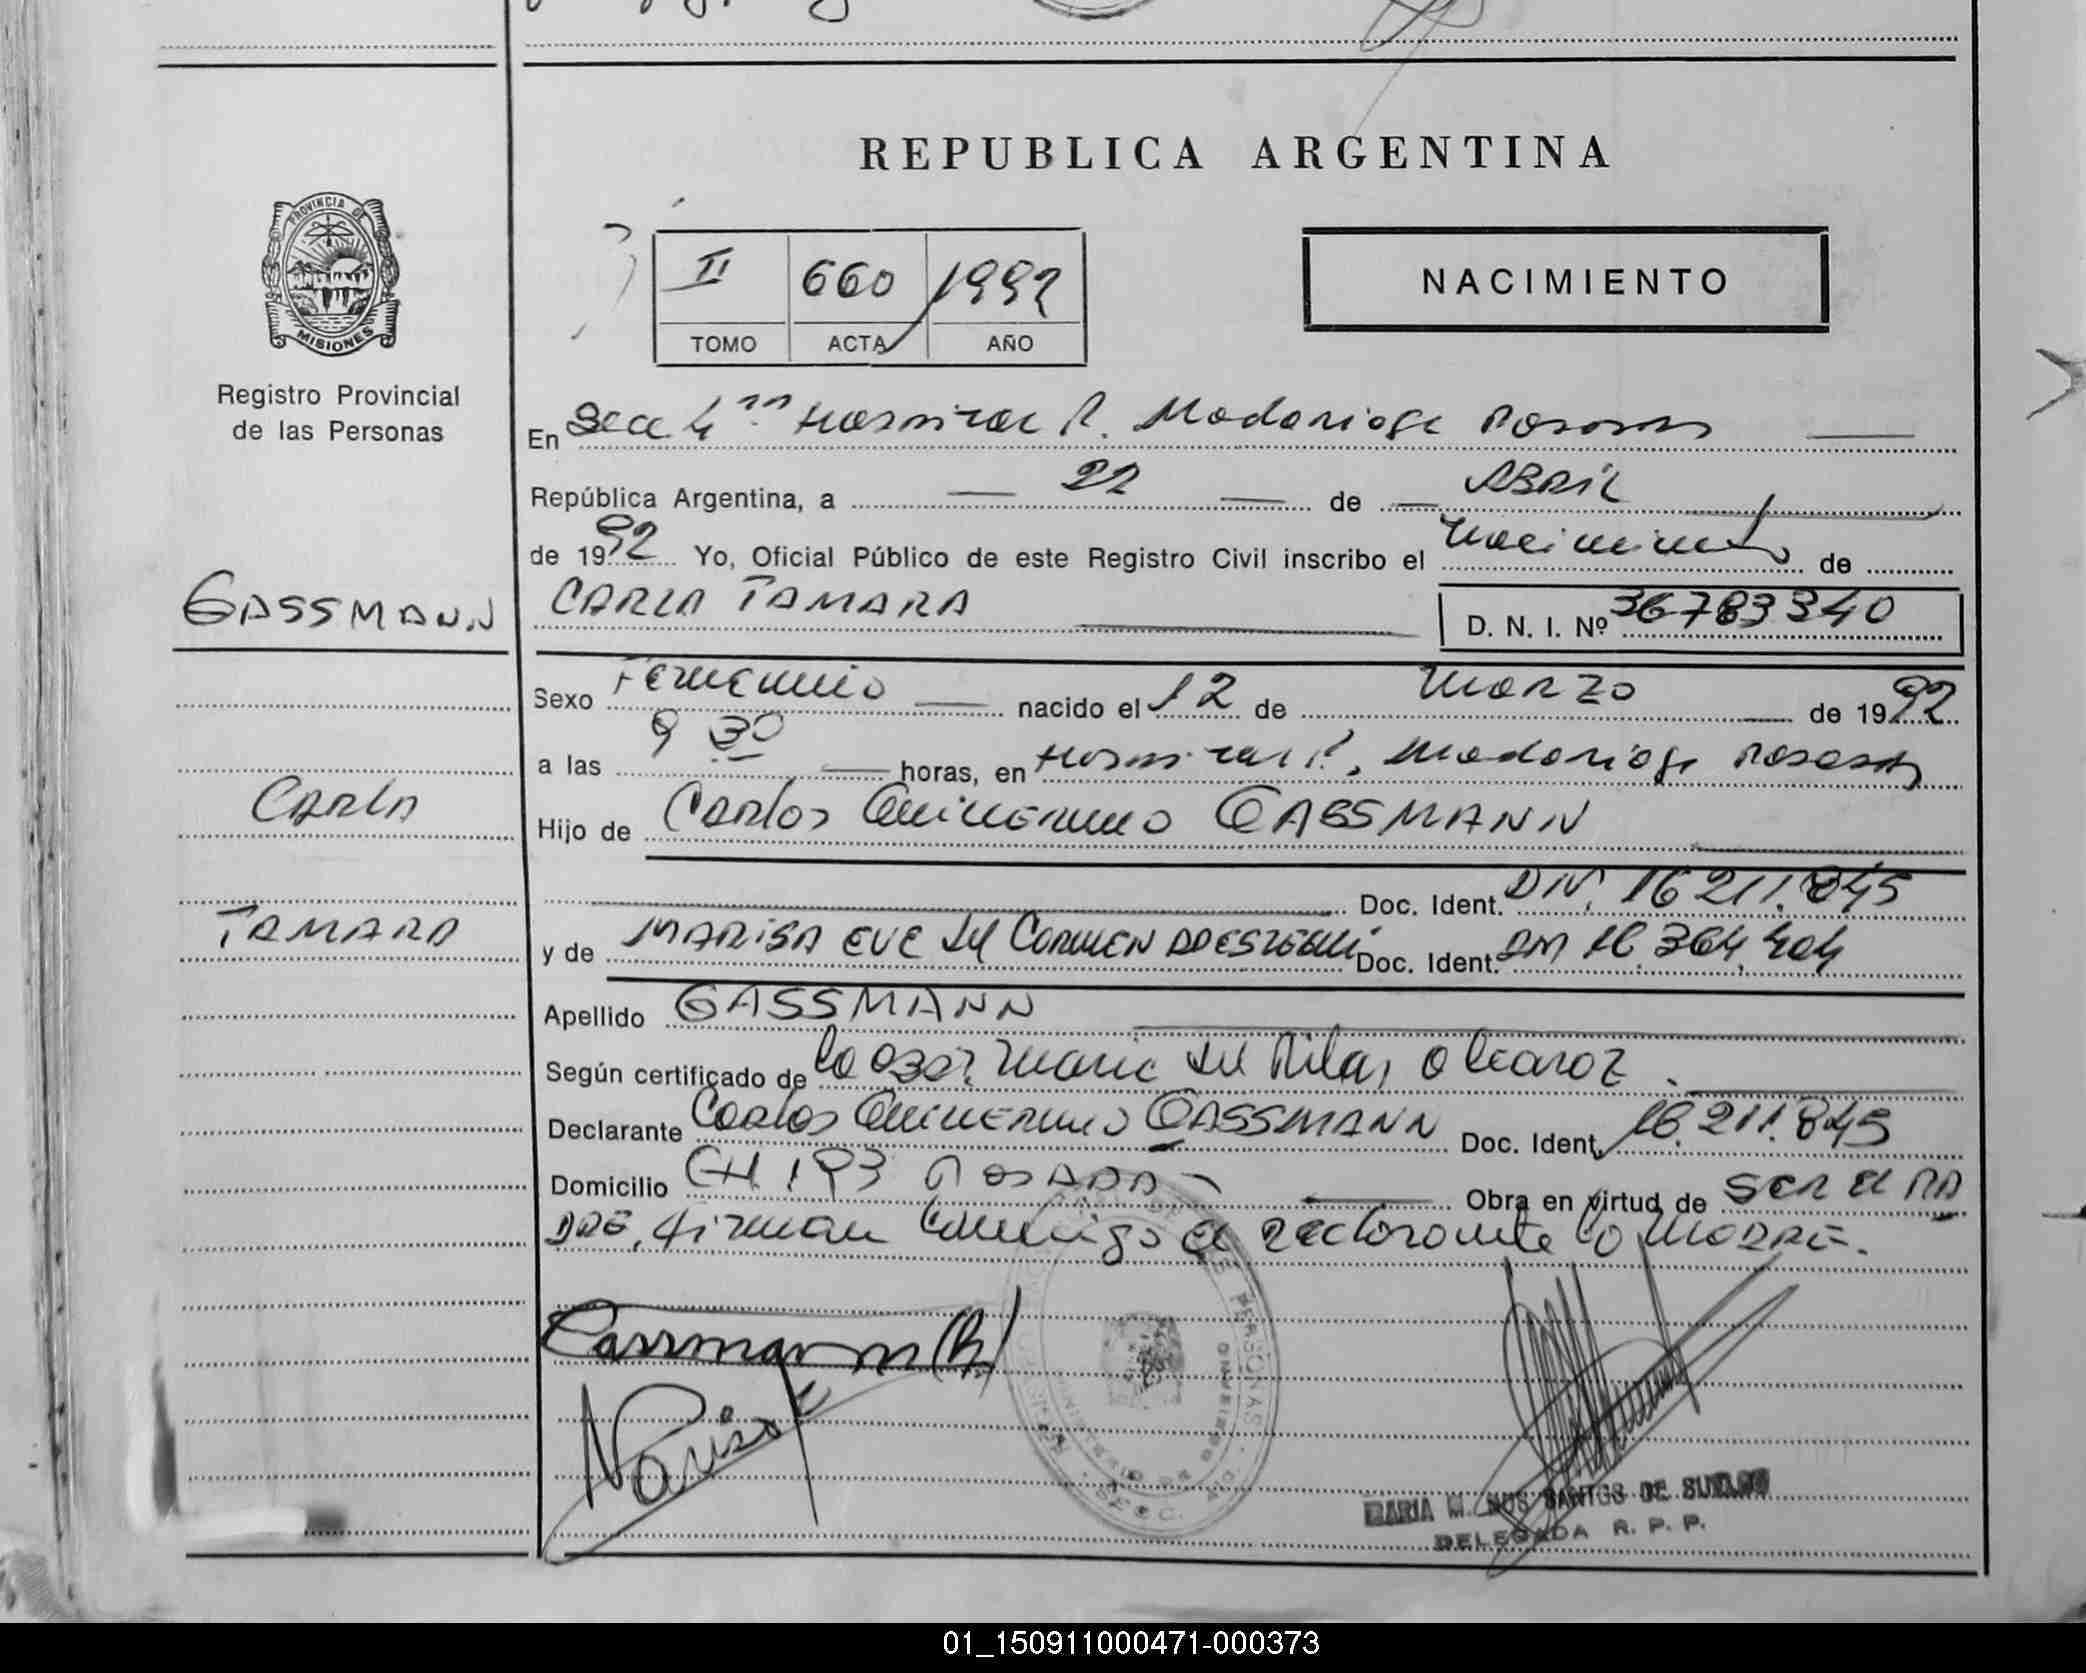 REPUBLICA ARGENTINA
PROVINCIA DE
MISIONES
Registro Provincial
de las Personas
II 660 1992
TOMO ACTA AÑO
NACIMIENTO
En Secc 4ta Hospital R. Madariaga Posadas
República Argentina, a 22 de Abril
de 1992 Yo, Oficial Público de este Registro Civil inscribo el nacimiento de
GASSMANN
CARLA TAMARA D. N. I. Nº 36783340
Sexo Femenino nacido el 12 de Marzo de 1992
a las 9 30 horas, en Hospital R. Madariaga Posadas
CARLA
Hijo de Carlos Guillermo GASSMANN
Doc. Ident. DNI. 16 211.845
TAMARA
y de MARISA EVE del CARMEN Doc. Ident. DNI 16.364.404
Apellido GASSMANN
Según certificado de la Obst. Maria del Pilar Alcaraz.
Declarante Carlos Guillermo GASSMANN Doc. Ident. 16.211.845
Domicilio CH 193 POSADAS Obra en virtud de SER EL PA
DRE, firman conmigo el declarante la MADRE.
Gassmann (h)
MARIA M. DOS SANTOS DE
DELEGADA R. P. P.
01_150911000471-000373